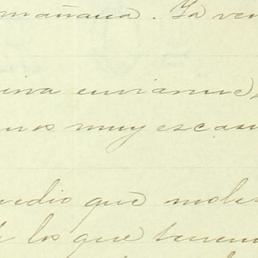 mañana. Ya ven
enviarme,
mos muy escas
edio que moles
los que tienen